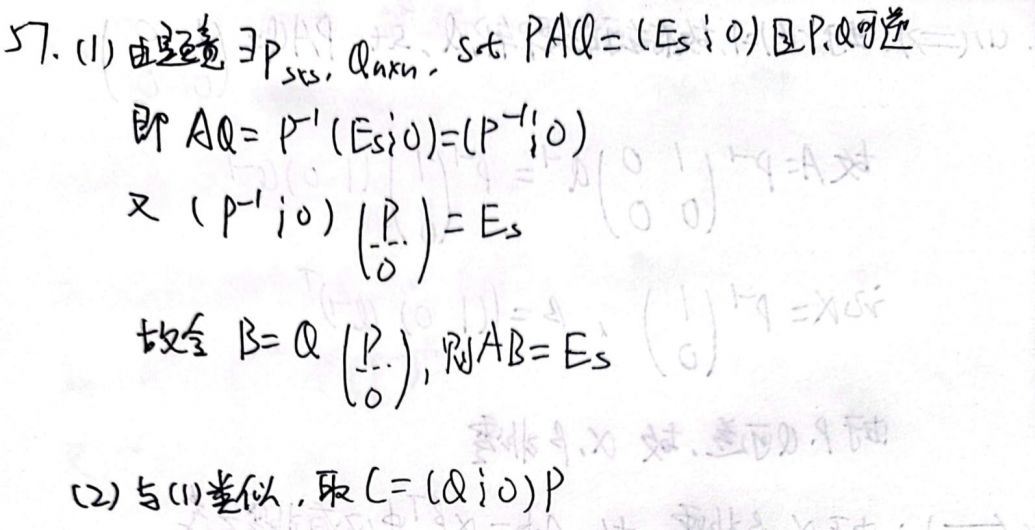 57. (1) 由题意 ∃P_{s×s}, Q_{n×n}, s.t. PAQ = (E_s ⋮ 0) 且 P,Q可逆
即 AQ = P^{-1} (E_s ⋮ 0) = (P^{-1} ⋮ 0)
又 (P^{-1} ⋮ 0) \begin{pmatrix} P \\ \hdashline 0 \end{pmatrix} = E_s
故令 B = Q \begin{pmatrix} P \\ \hdashline 0 \end{pmatrix}, 则 AB = E_s
(2) 与(1)类似, 取 C = (Q ⋮ 0) P